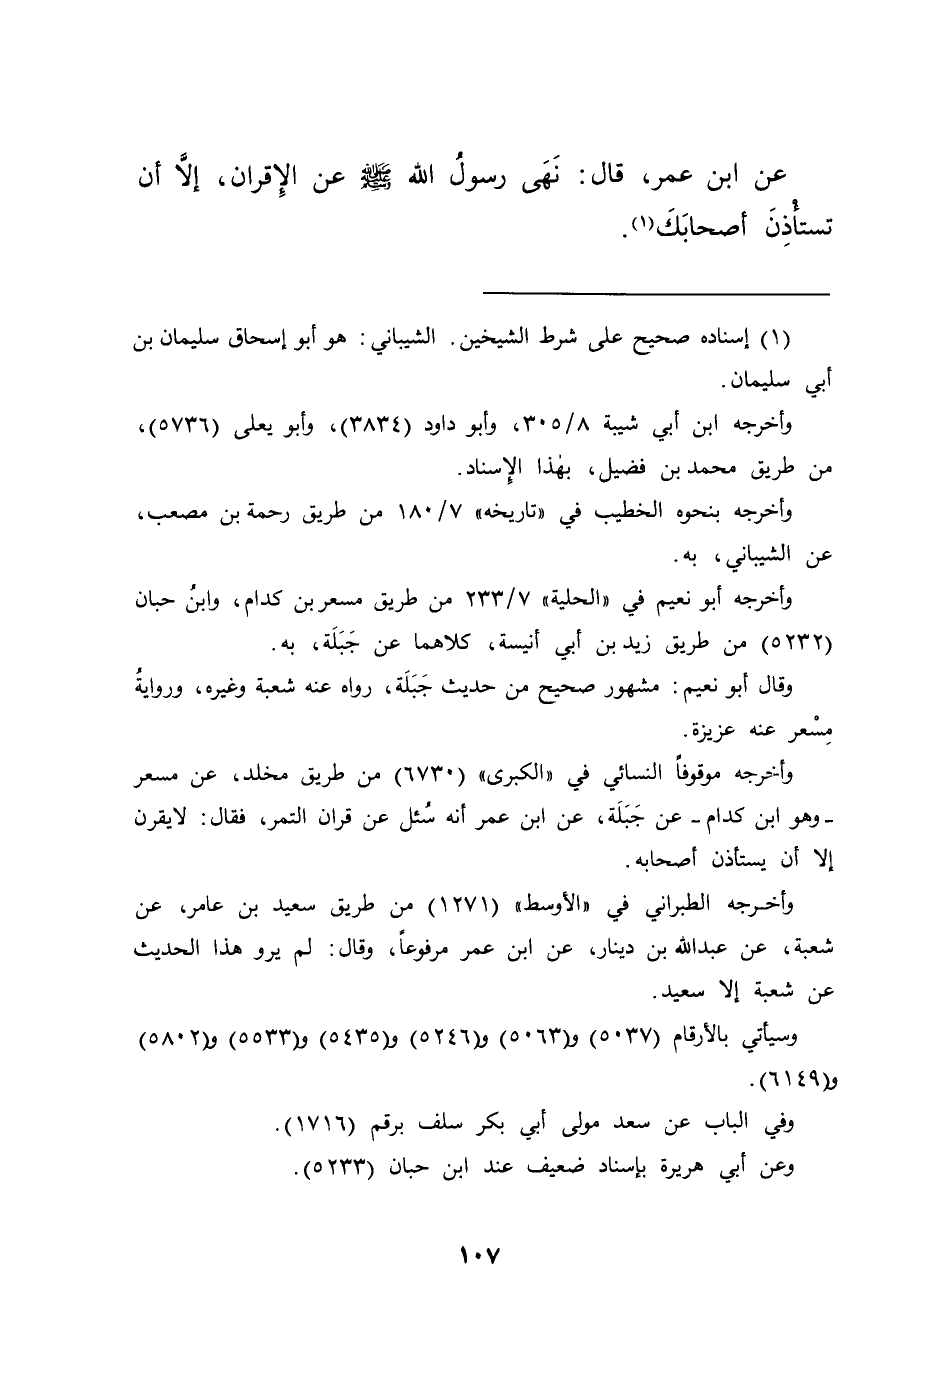 عن ابن عمر، قال: نَهَى رسولُ الله ﷺ عن الإِقران، إلَّا أن
تستأْذِنَ أصحابَكَ(١).
(١) إسناده صحيح على شرط الشيخين. الشيباني: هو أبو إسحاق سليمان بن
أبي سليمان.
وأخرجه ابن أبي شيبة ٣٠٥/٨، وأبو داود (٣٨٣٤)، وأبو يعلى (٥٧٣٦)،
من طريق محمد بن فضيل، بهٰذا الإِسناد.
وأخرجه بنحوه الخطيب في «تاريخه» ١٨٠/٧ من طريق رحمة بن مصعب،
عن الشيباني، به.
وأخرجه أبو نعيم في «الحلية» ٢٣٣/٧ من طريق مسعر بن كدام، وابنُ حبان
(٥٢٣٢) من طريق زيد بن أبي أنيسة، كلاهما عن جَبَلَة، به.
وقال أبو نعيم: مشهور صحيح من حديث جَبَلَة، رواه عنه شعبة وغيره، وروايةُ
مِسْعر عنه عزيزة.
وأخرجه موقوفاً النسائي في «الكبرى» (٦٧٣٠) من طريق مخلد، عن مسعر
ـ وهو ابن كدام ـ عن جَبَلَة، عن ابن عمر أنه سُئل عن قران التمر، فقال: لايقرن
إلا أن يستأذن أصحابه.
وأخرجه الطبراني في «الأوسط» (١٢٧١) من طريق سعيد بن عامر، عن
شعبة، عن عبدالله بن دينار، عن ابن عمر مرفوعاً، وقال: لم يرو هذا الحديث
عن شعبة إلا سعيد.
وسيأتي بالأرقام (٥٠٣٧) و(٥٠٦٣) و(٥٢٤٦) و(٥٤٣٥) و(٥٥٣٣) و(٥٨٠٢)
و(٦١٤٩).
وفي الباب عن سعد مولى أبي بكر سلف برقم (١٧١٦).
وعن أبي هريرة بإسناد ضعيف عند ابن حبان (٥٢٣٣).
١٠٧